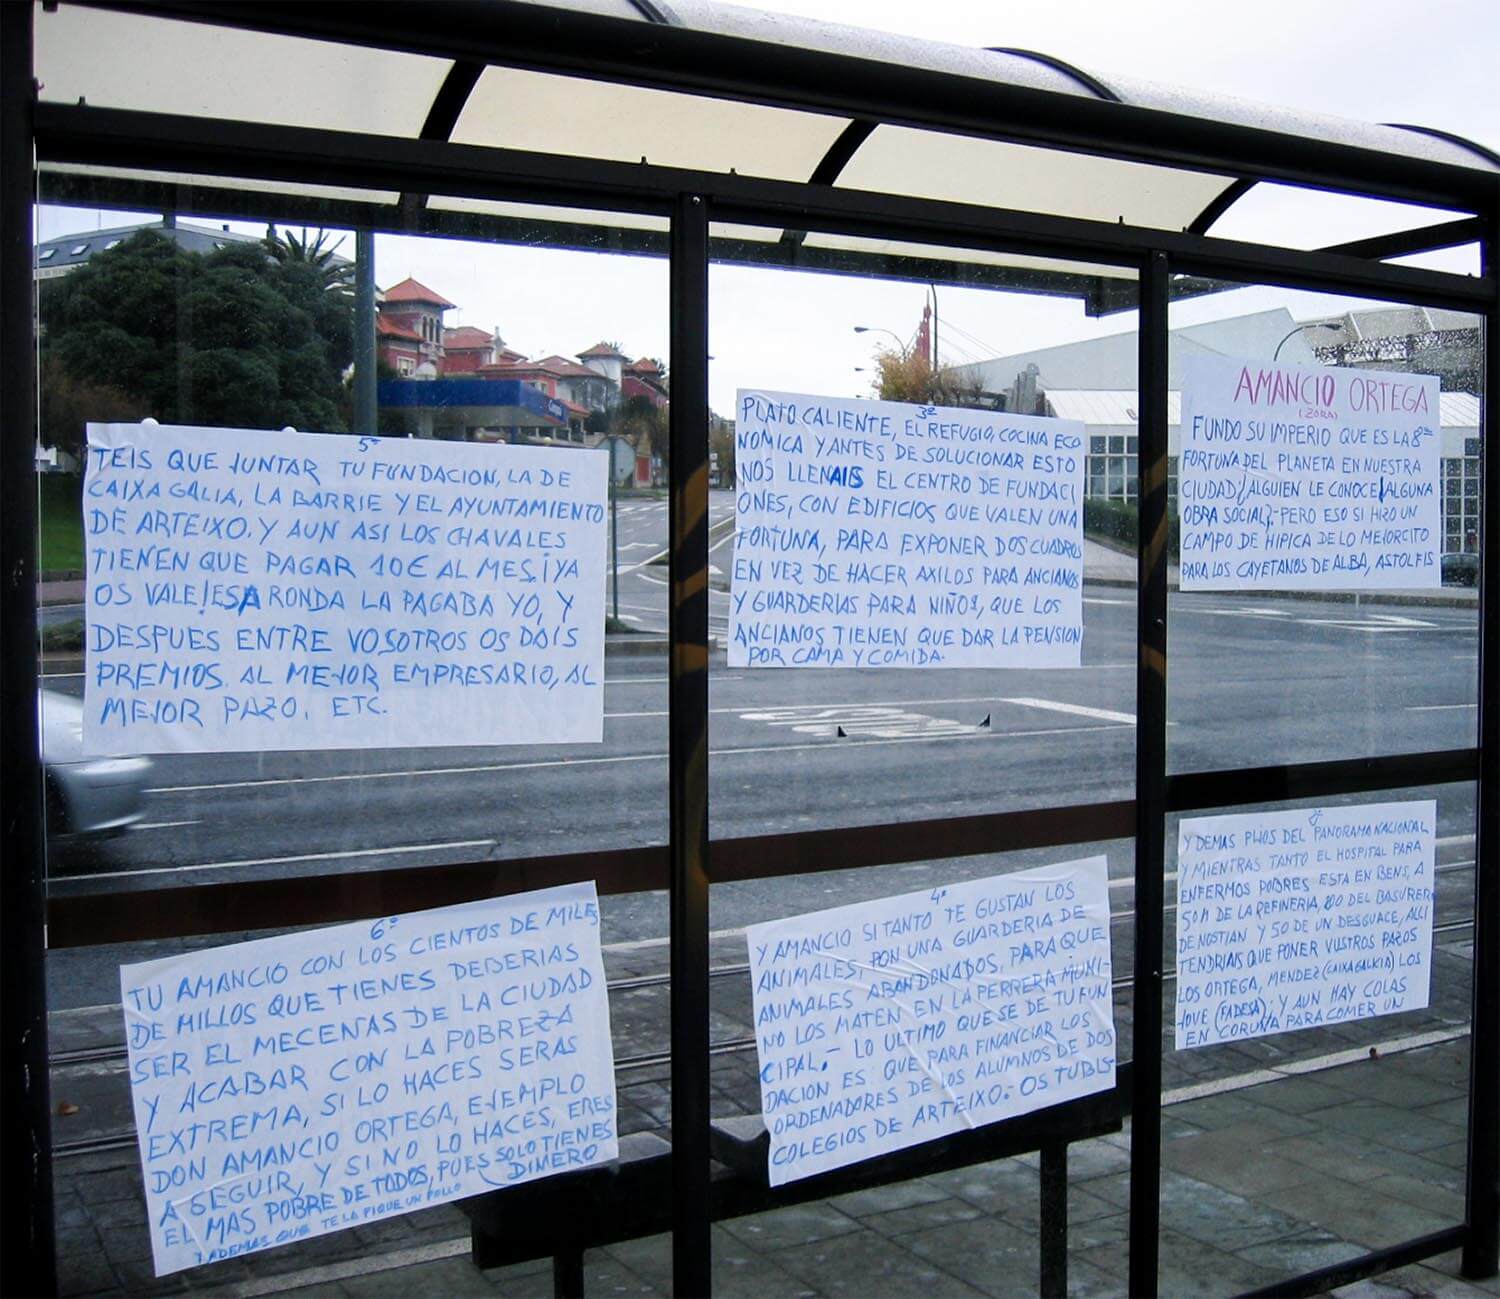 AMANCIO ORTEGA
(ZARA)
FUNDO SU IMPERIO QUE ES LA 8ª
FORTUNA DEL PLANETA EN NUESTRA
CIUDAD ¿ALGUIEN LE CONOCE ALGUNA
OBRA SOCIAL?.- PERO ESO SI HIZO UN
CAMPO DE HIPICA DE LO MEJORCITO
PARA LOS CAYETANOS DE ALBA, ASTOLFIS
Y DEMAS PIJOS DEL PANORAMA NACIONAL
Y MIENTRAS TANTO EL HOSPITAL PARA
ENFERMOS POBRES ESTA EN BENS, A
50 M DE LA REFINERIA, 200 DEL BASURERO
DE NOSTIAN Y 50 DE UN DESGUACE, ALLI
TENDRIAIS QUE PONER VUSTROS PAZOS
LOS ORTEGA, MENDEZ (CAIXAGALICIA) LOS
JOVE (FADESA); Y AUN HAY COLAS
EN CORUÑA PARA COMER UN
3º
PLATO CALIENTE, EL REFUGIO, COCINA ECO
NOMICA Y ANTES DE SOLUCIONAR ESTO
NOS LLENAIS EL CENTRO DE FUNDACI
ONES, CON EDIFICIOS QUE VALEN UNA
FORTUNA, PARA EXPONER DOS CUADROS
EN VEZ DE HACER AXILOS PARA ANCIANOS
Y GUARDERIAS PARA NIÑOS, QUE LOS
ANCIANOS TIENEN QUE DAR LA PENSION
POR CAMA Y COMIDA.
4º
Y AMANCIO SI TANTO TE GUSTAN LOS
ANIMALES, PON UNA GUARDERIA DE
ANIMALES ABANDONADOS, PARA QUE
NO LOS MATEN EN LA PERRERA MUNI-
CIPAL.- LO ULTIMO QUE SE DE TU FUN
DACION ES: QUE PARA FINANCIAR LOS
ORDENADORES DE LOS ALUMNOS DE DOS
COLEGIOS DE ARTEIXO.- OS TUBIS-
5º
TEIS QUE JUNTAR TU FUNDACION, LA DE
CAIXA GALIA, LA BARRIE Y EL AYUNTAMIENTO
DE ARTEIXO. Y AUN ASI LOS CHAVALES
TIENEN QUE PAGAR 10€ AL MES, ¡YA
OS VALE! ESA RONDA LA PAGABA YO, Y
DESPUES ENTRE VOSOTROS OS DAIS
PREMIOS. AL MEJOR EMPRESARIO, AL
MEJOR PAZO, ETC.
6º
TU AMANCIO CON LOS CIENTOS DE MILES
DE MILLOS QUE TIENES DEBERIAS
SER EL MECENAS DE LA CIUDAD
Y ACABAR CON LA POBREZA
EXTREMA, SI LO HACES SERAS
DON AMANCIO ORTEGA, EJEMPLO
A SEGUIR, Y SI NO LO HACES, ERES
EL MAS POBRE DE TODOS, PUES SOLO TIENES
DINERO
Y ADEMAS QUE TE LA PIQUE UN POLLO